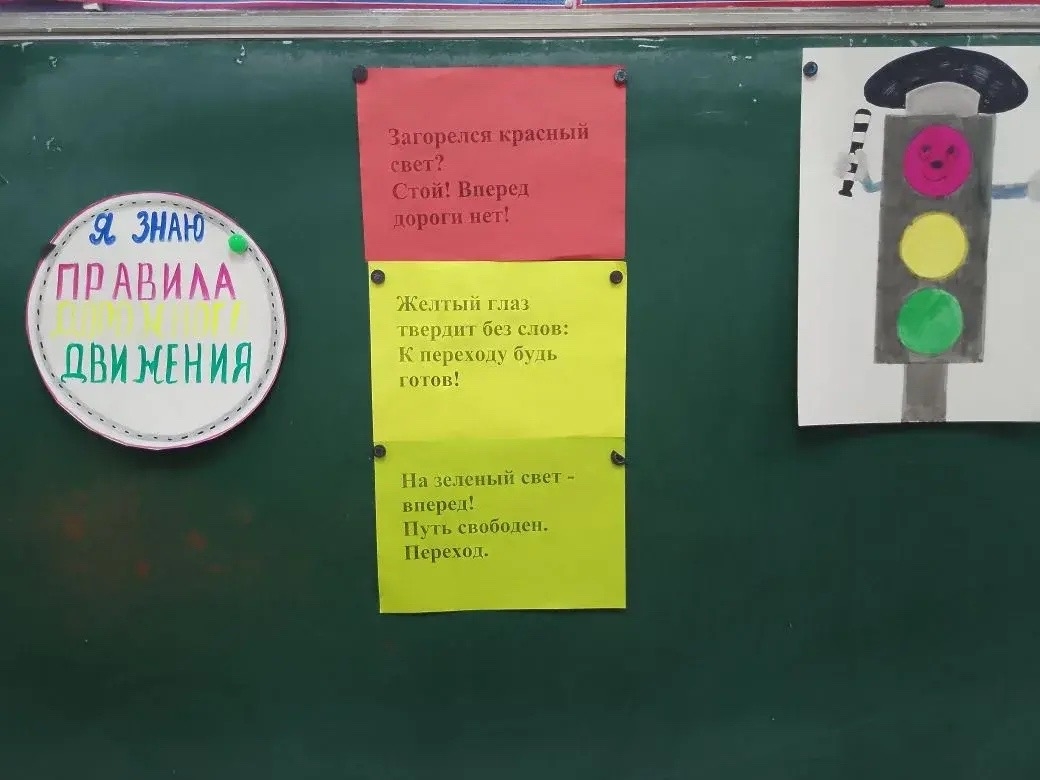 Я ЗНАЮ
ПРАВИЛА
ДОРОЖНОГО
ДВИЖЕНИЯ
Загорелся красный
свет?
Стой! Вперед
дороги нет!
Желтый глаз
твердит без слов:
К переходу будь
готов!
На зеленый свет -
вперед!
Путь свободен.
Переход.